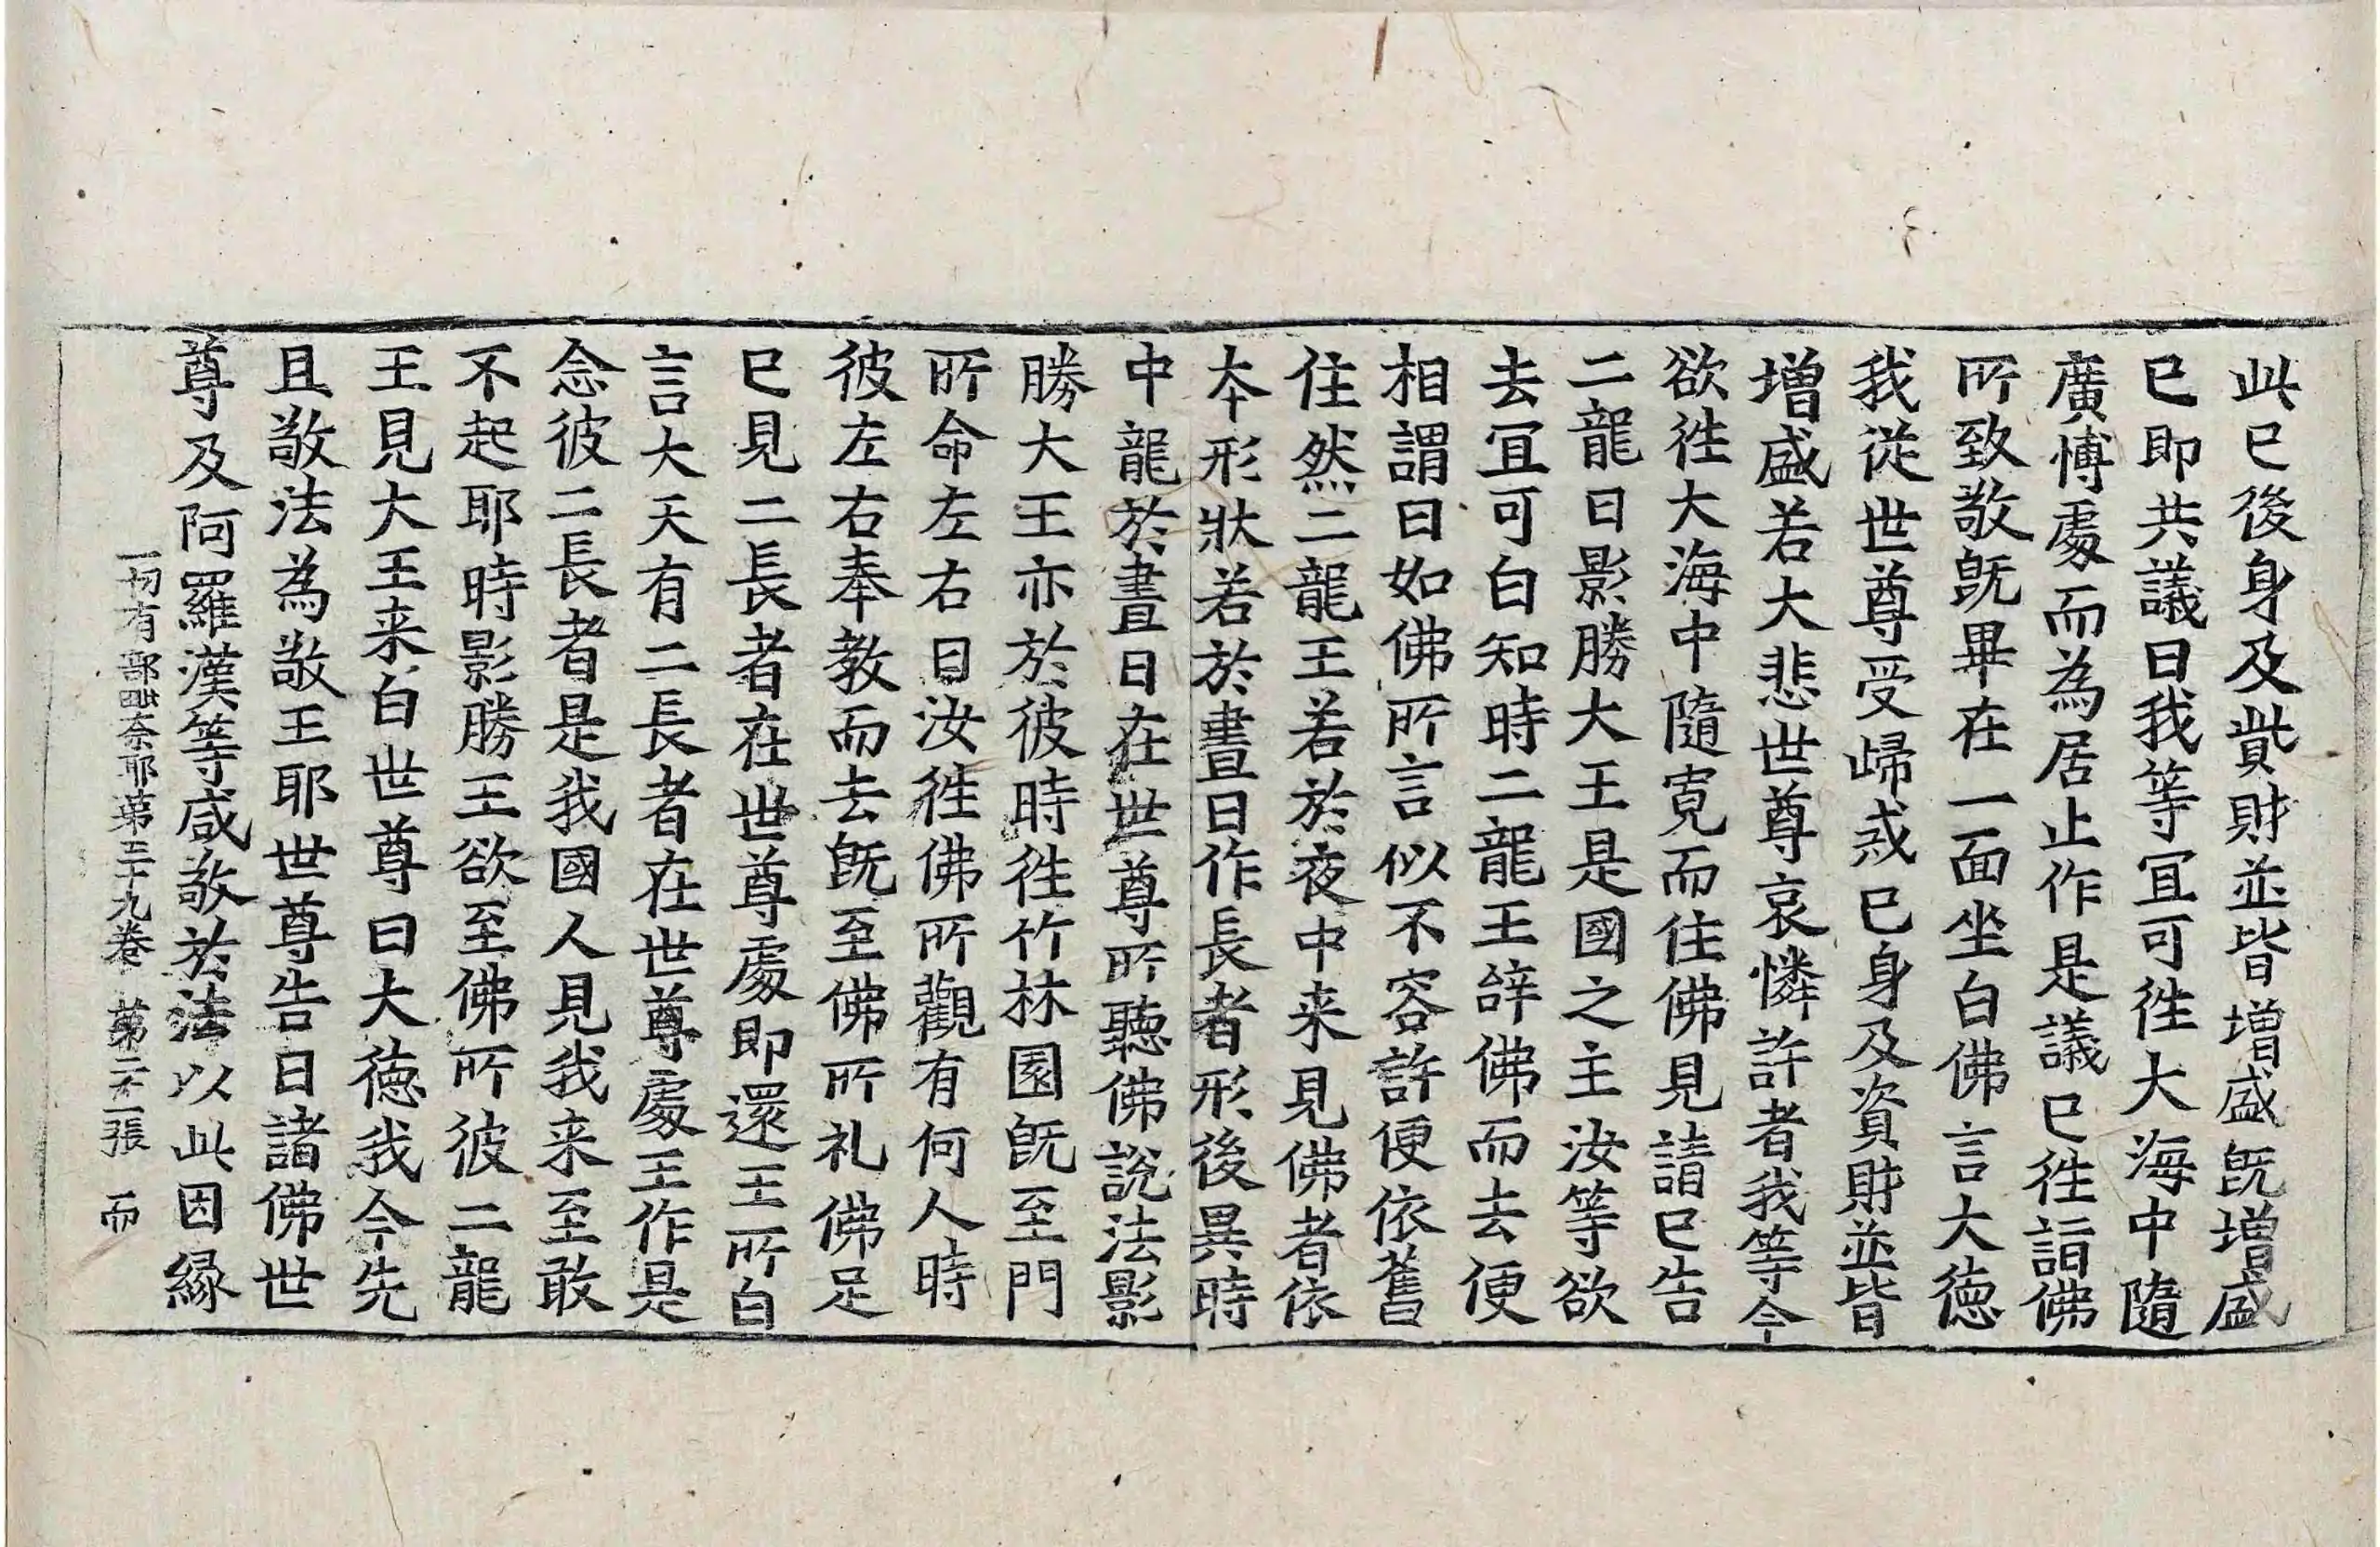 此已後身及貲財並皆增盛既增盛
已即共議曰我等宜可往大海中隨
廣愽處而為居止作是議已往詣佛
所致敬既畢在一面坐白佛言大德
我從世尊受歸戒已身及資財並皆
增盛若大悲世尊哀憐許者我等今
欲往大海中隨寬而住佛見請已告
二龍曰影勝大王是國之主汝等欲
去宜可白知時二龍王辝佛而去便
相謂曰如佛所言似不容許便依舊
住然二龍王若於夜中来見佛者依
本形狀若於晝日作長者形後異時
中龍於晝日在世尊所聽佛說法影
勝大王亦於彼時往竹林園既至門
所命左右曰汝往佛所觀有何人時
彼左右奉教而去既至佛所礼佛足
已見二長者在世尊處即還王所白
言大天有二長者在世尊處王作是
念彼二長者是我國人見我来至敢
不起耶時影勝王欲至佛所彼二龍
王見大王来白世尊曰大德我今先
且敬法為敬王耶世尊告曰諸佛世
尊及阿羅漢等咸敬於法以此因緣
一切有部毗奈耶第三十九卷 第二十一張 而